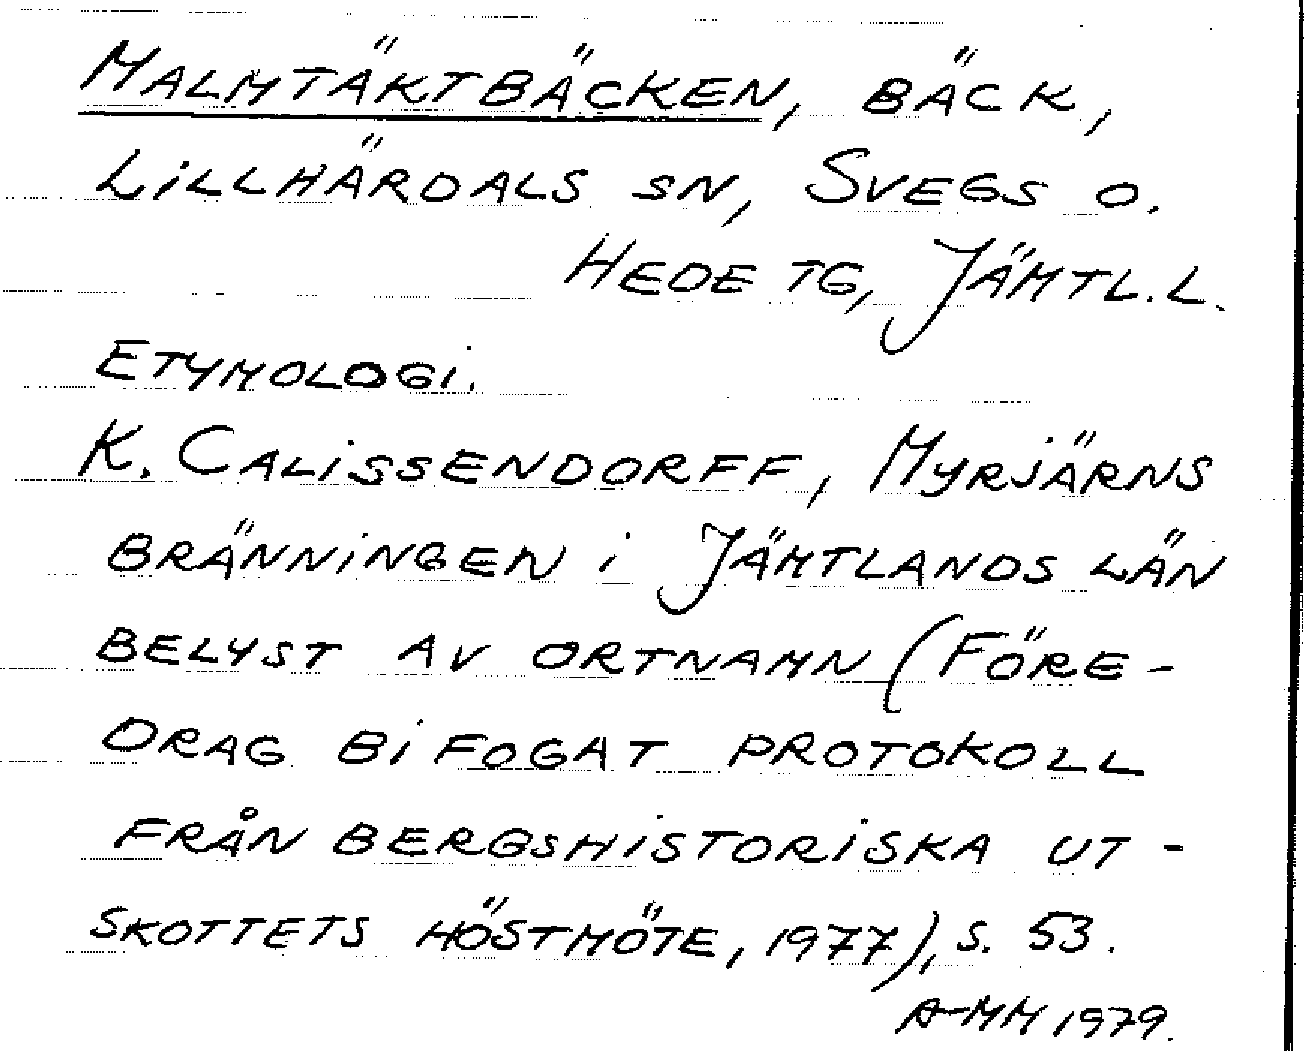 MALMTÄKTBÄCKEN, BÄCK,
LILLHÄRDALS SN, SVEGS O.
HEDE TG, JÄMTL.L.
ETYMOLOGI.
K. CALISSENDORFF, MYRJÄRNS
BRÄNNINGEN I JÄMTLANDS LÄN
BELYST AV ORTNAMN (FÖRE-
DRAG BIFOGAT PROTOKOLL
FRÅN BERGSHISTORISKA UT-
SKOTTETS HÖSTMÖTE, 1977), S. 53.
A-MM 1979.